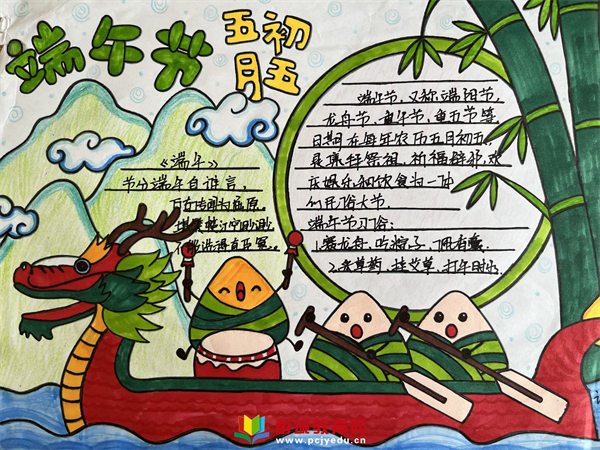 端午节
五月初五
《端午》
节分端午自谁言，
万古传闻为屈原。
堪笑楚江空渺渺，
不能洗得直臣冤。
端午节，又称端阳节、
龙舟节、重午节、重五节等，
日期在每年农历五月初五，
是集拜祭祖、祈福辟邪、欢
庆娱乐和饮食为一体
的民俗大节。
端午节习俗：
1.赛龙舟、吃粽子、佩香囊
2.采草药、挂艾草、打午时水
www.pcjyedu.cn